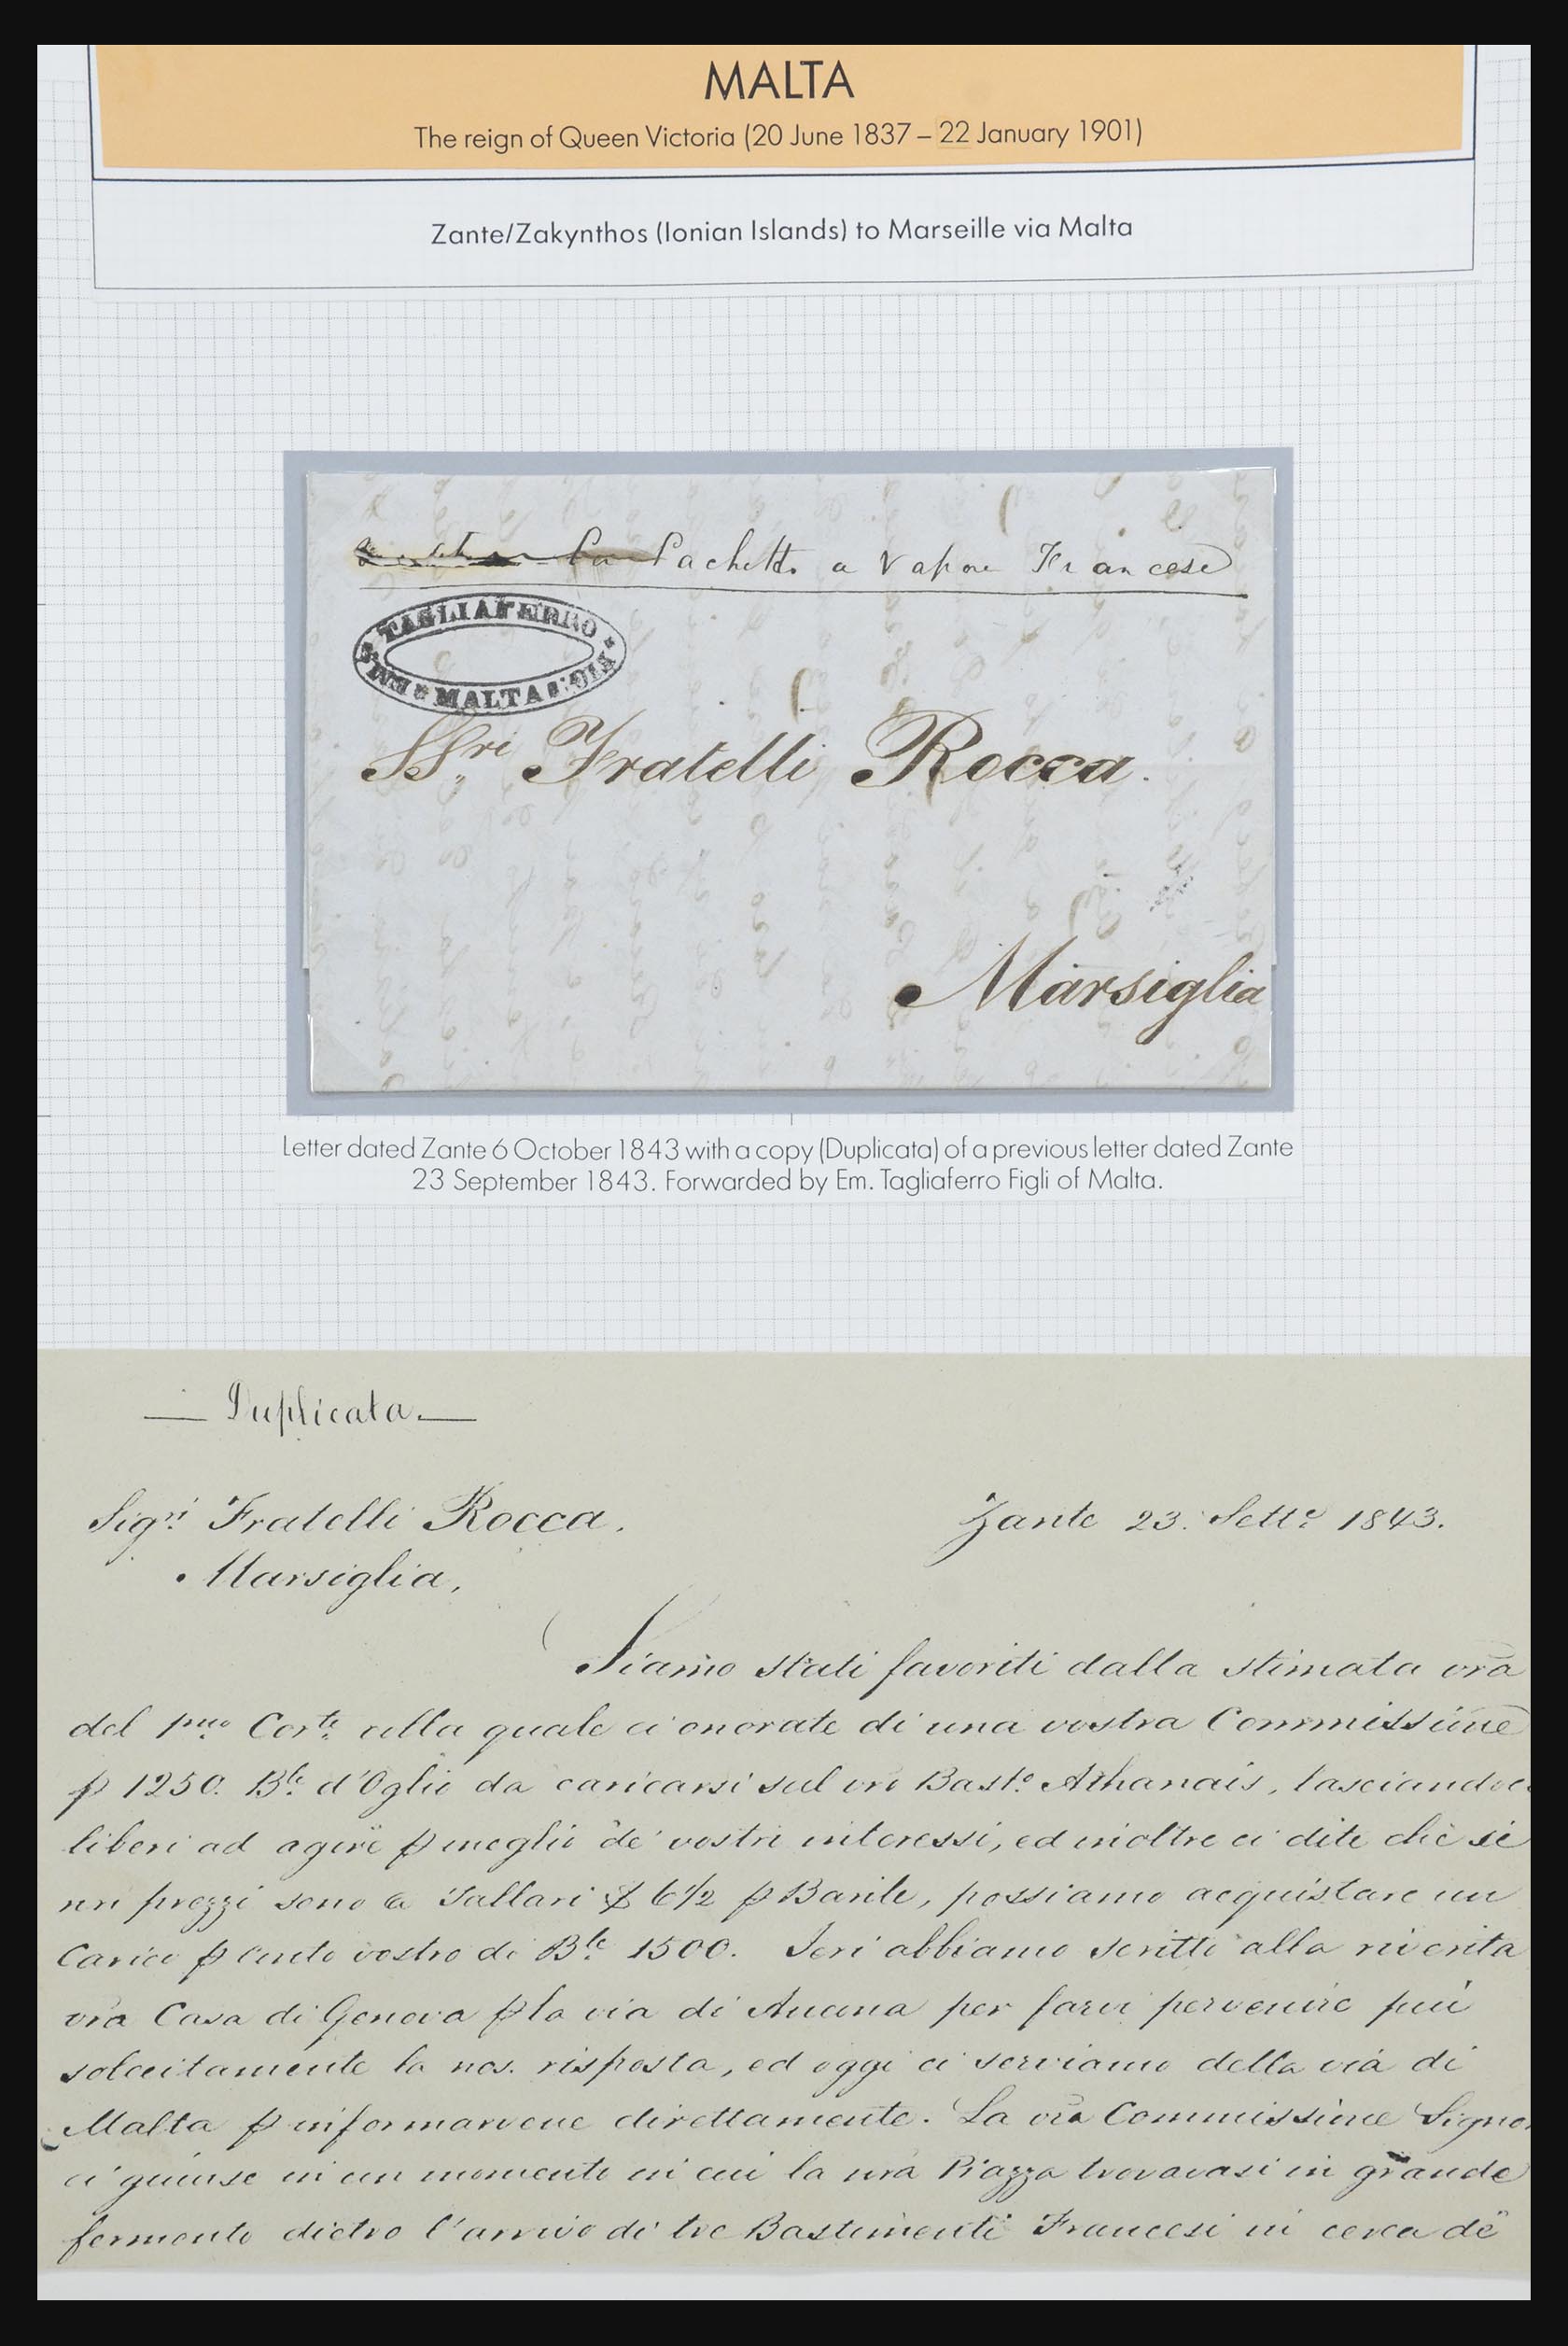 MALTA
The reign of Queen Victoria (20 June 1837 – 22 January 1901)
Zante/Zakynthos (Ionian Islands) to Marseille via Malta
Pachetto a Vapore Francese
TAGLIAFERRO
EM. MALTA FIGLI
SSri Fratelli Rocca.
Marsiglia
Letter dated Zante 6 October 1843 with a copy (Duplicata) of a previous letter dated Zante
23 September 1843. Forwarded by Em. Tagliaferro Figli of Malta.
— Duplicata. —
Sigri Fratelli Rocca.
Zante 23. Sette 1843.
Marsiglia,
Siamo stati favoriti dalla stimata vra
del pmo Corte colla quale ci onorate di una vostra Commissione
p 1250. Ble d'Oglio da caricarsi sul vro Basto Athanais, lasciandoci
liberi ad agire p meglio de' vostri interessi, ed inoltre ci dite che se
nri prezzi sono a Tallari 6 1/2 p Barile, possiamo acquistare un
Carico p conto vostro di Ble 1500. Ieri abbiamo scritto alla riverita
vra Casa di Genova p la via di Ancona per farvi pervenire più
solecitamente la nos. risposta, ed oggi ci serviamo della via di
Malta p informarvene direttamente. La vra Commissione Signori
ci giunse in un momento in cui la nra Piazza trovavasi in grande
fermento dietro l'arrivo di tre Bastimenti Francesi in cerca de